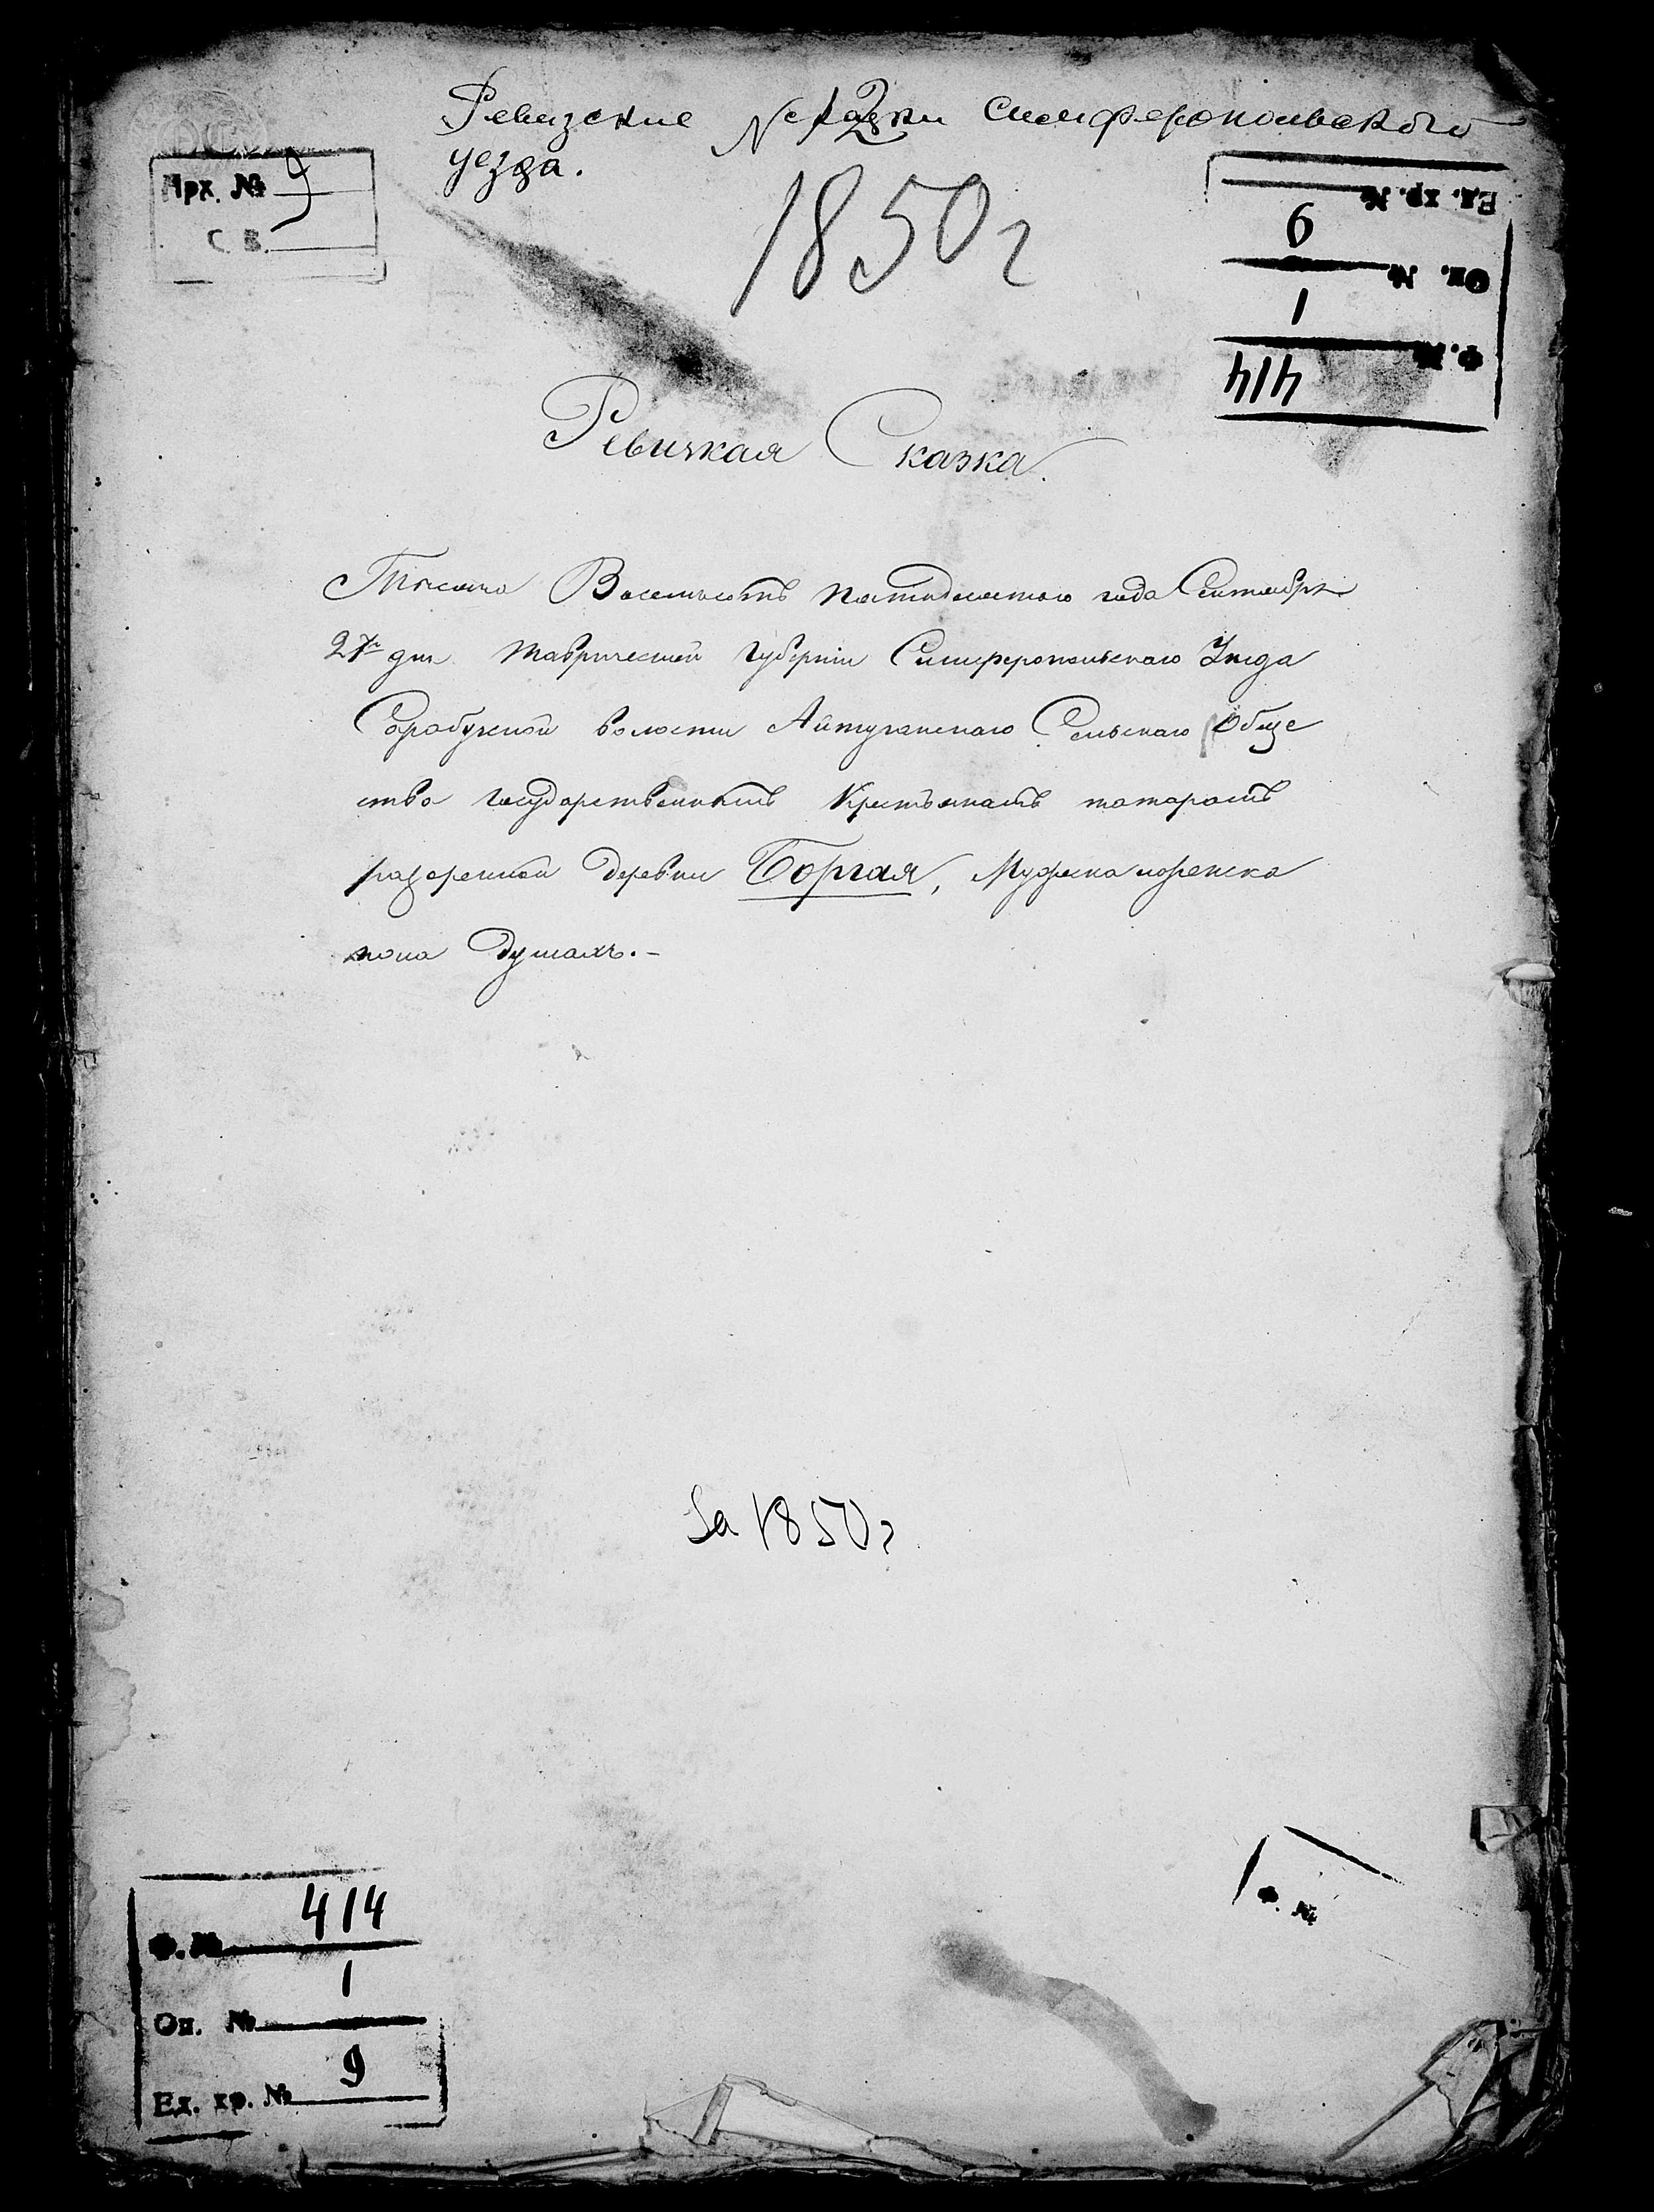 Ревизские сказки Симферопольского
уезда.
№ 2
Арх. № 9
С. В.
1850 г
Ед. хр. № 9
Оп. № 1
Ф. № 414
Ревизкая Сказка.
Тысяча Восемьсотъ пятидесятого года Сентября
27го дня Таврической Губерніи Симферопольскаго Уезда
Сарабузской волости Айтуганскаго Сельскаго Обще
ства государственныхъ Крестьянахъ татарахъ
разоренной деревни Боргая, Мужеска и женска
пола душахъ.-
За 1850 г
Ф. №
Ф. № 414
Оп. № 1
Ед. хр. № 9